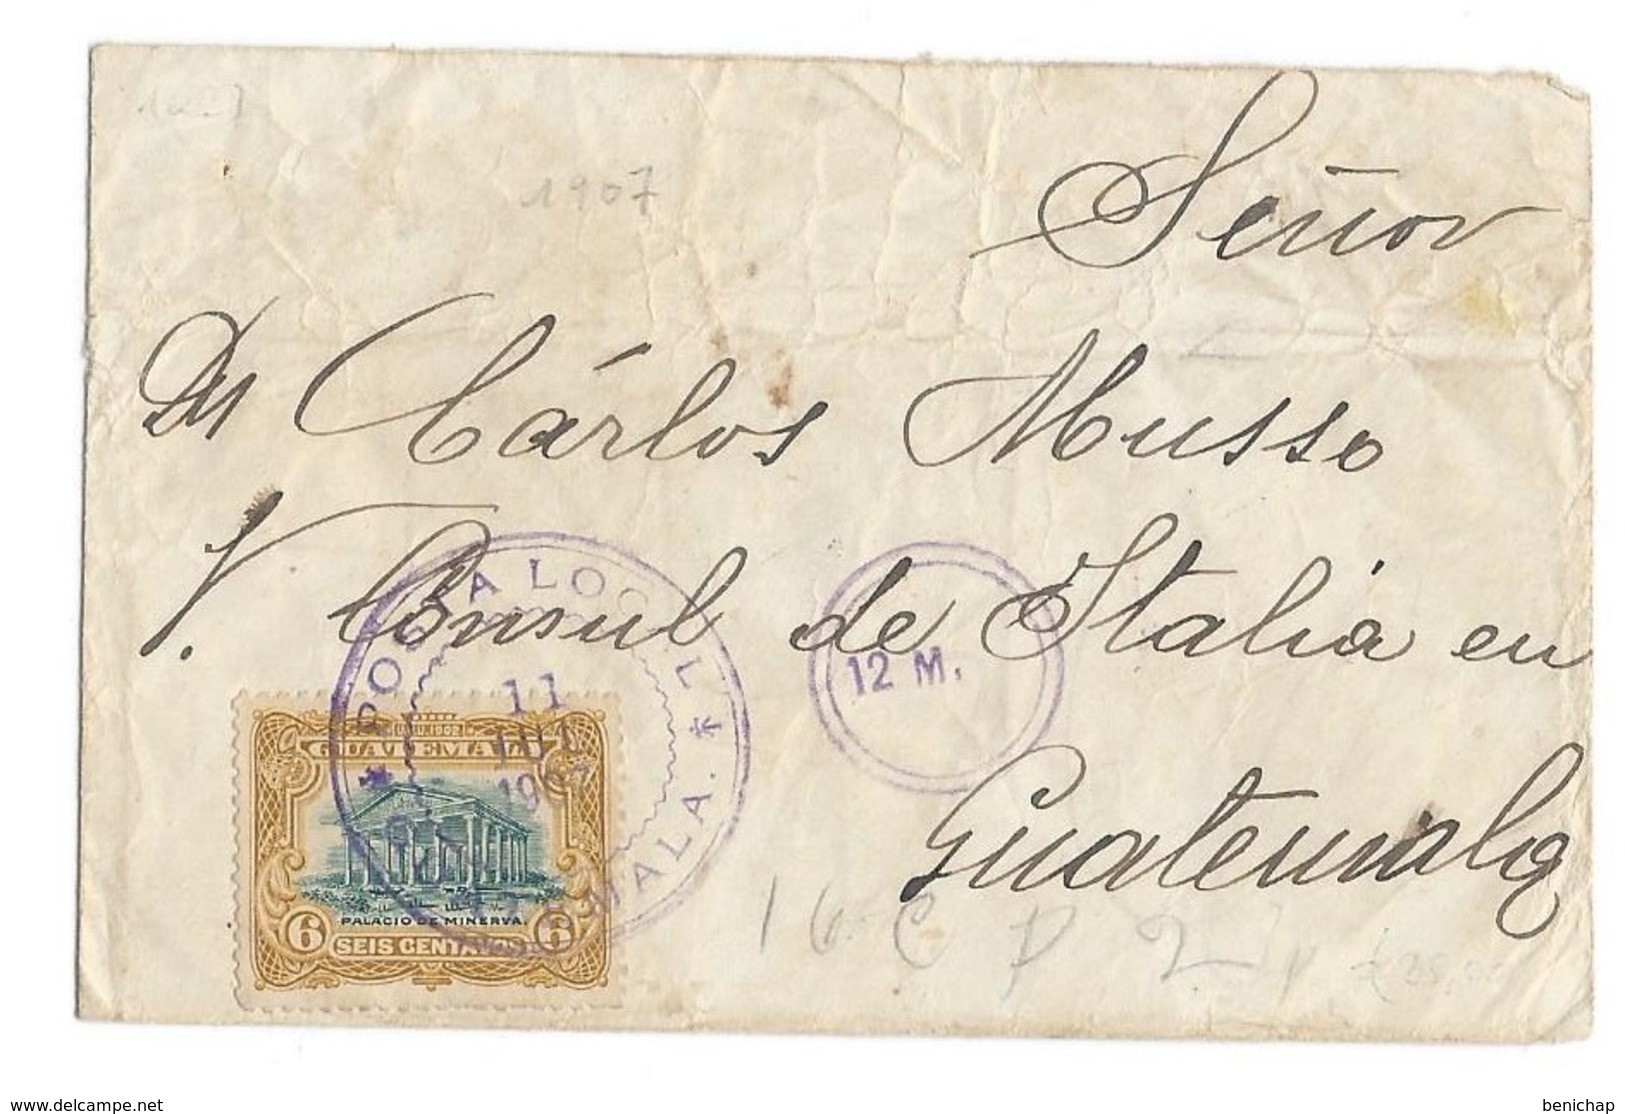 1907
Señor
Dn Cárlos Musso
V. Consul de Italia en
Guatemala
POSTA LOCAL
GUATEMALA.
11
JUL
1907
12 M.
U.P.U. 1902
GUATEMALA
PALACIO DE MINERVA
6 SEIS CENTAVOS 6
16 C P 2
www.delcampe.net
benichap